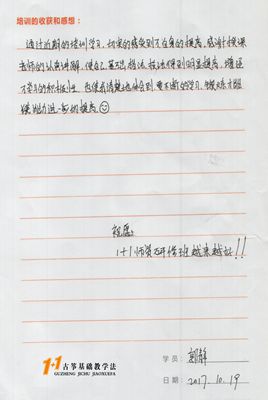 培训的收获和感想：
通过近期的培训学习，切实的感受到了自身的提高，感谢授课
老师的认真讲解，使自己基本技法得到明显提高，增强
了学习的积极性，也使我清楚地体会到，要不断的学习，继续
使能力进一步的提高
祝愿：
1+1师资研修班越来越好!!
1+1 古筝基础教学法
GUZHENG JICHU JIAOXUEFA
学员：
日期：2017.10.19